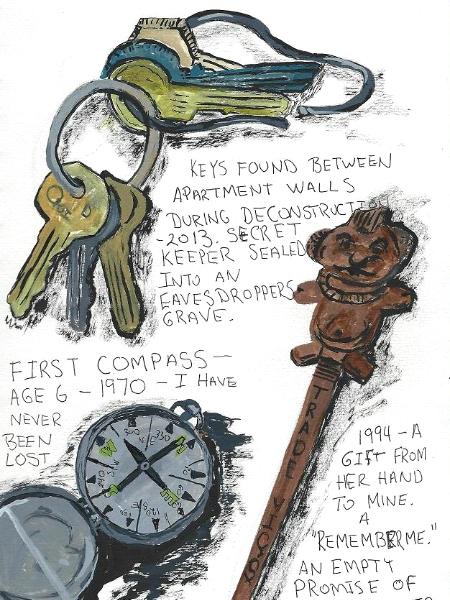 KEYS FOUND BETWEEN
APARTMENT WALLS
DURING DECONSTRUCTION
-2013. SECRET
KEEPER SEALED
INTO AN
EAVESDROPPERS
GRAVE.
FIRST COMPASS —
AGE 6 - 1970 - I HAVE
NEVER
BEEN
LOST
TRADE
1994 - A
GIFT FROM
HER HAND
TO MINE.
A
"REMEMBER ME."
AN EMPTY
PROMISE OF